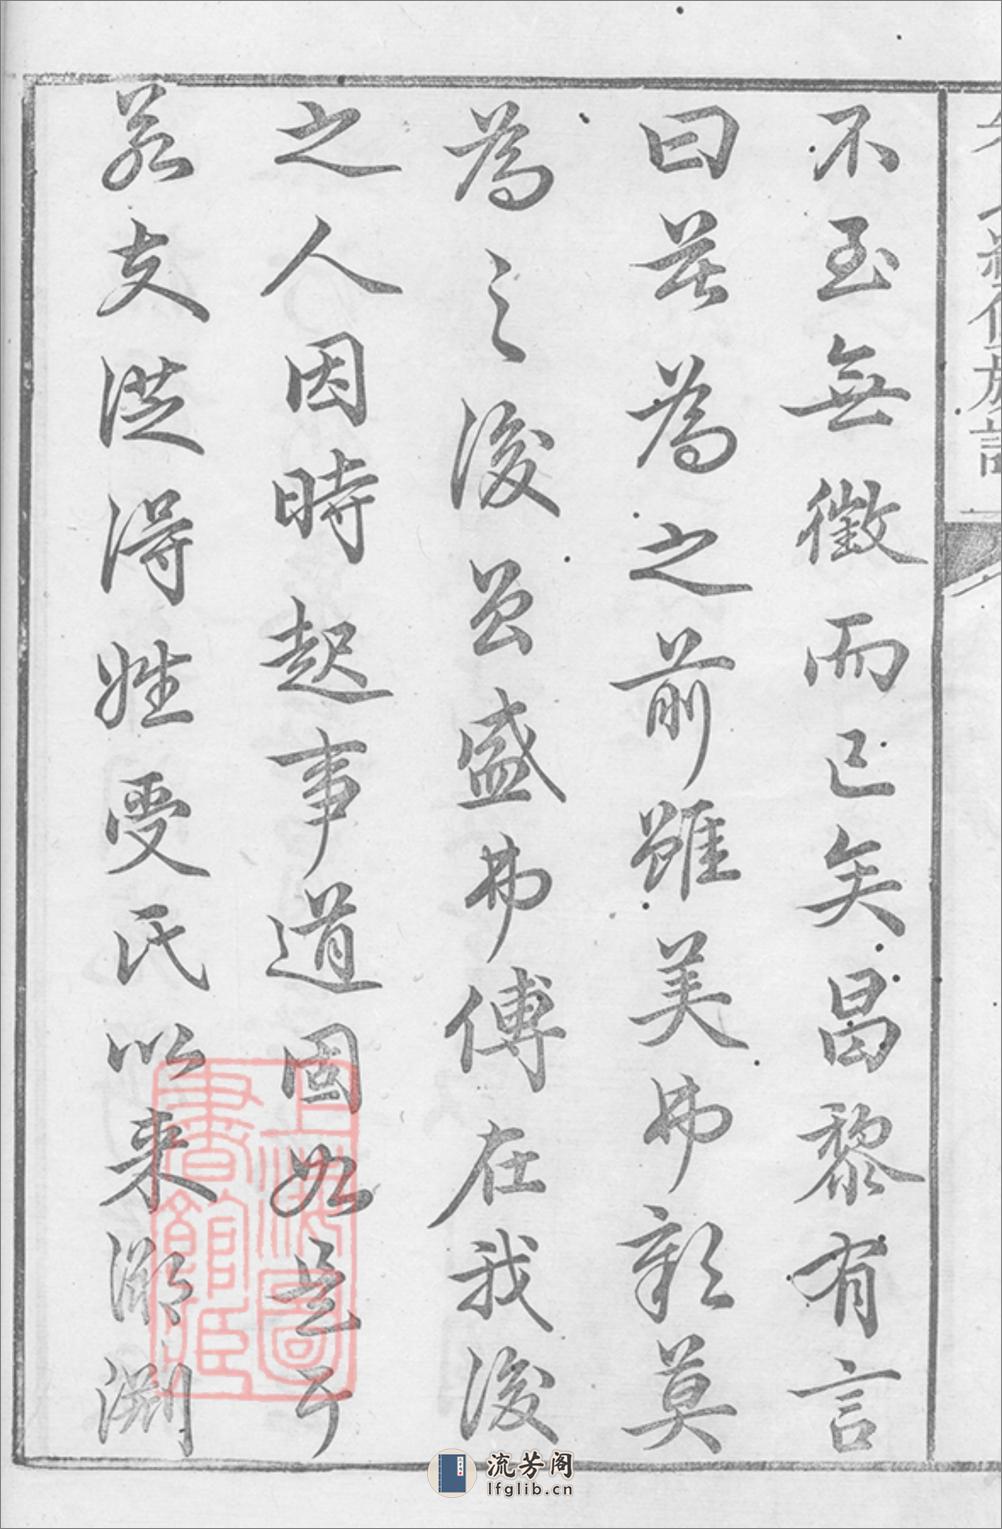 不至無徵而已矣昌黎有言
曰莫為之前雖美弗彰莫
為之後虽盛弗傳在我後
之人因時起事道固如是耳
若支從得姓受氏以來溯淵
上海圖
書館藏
流芳阁
lfglib.cn